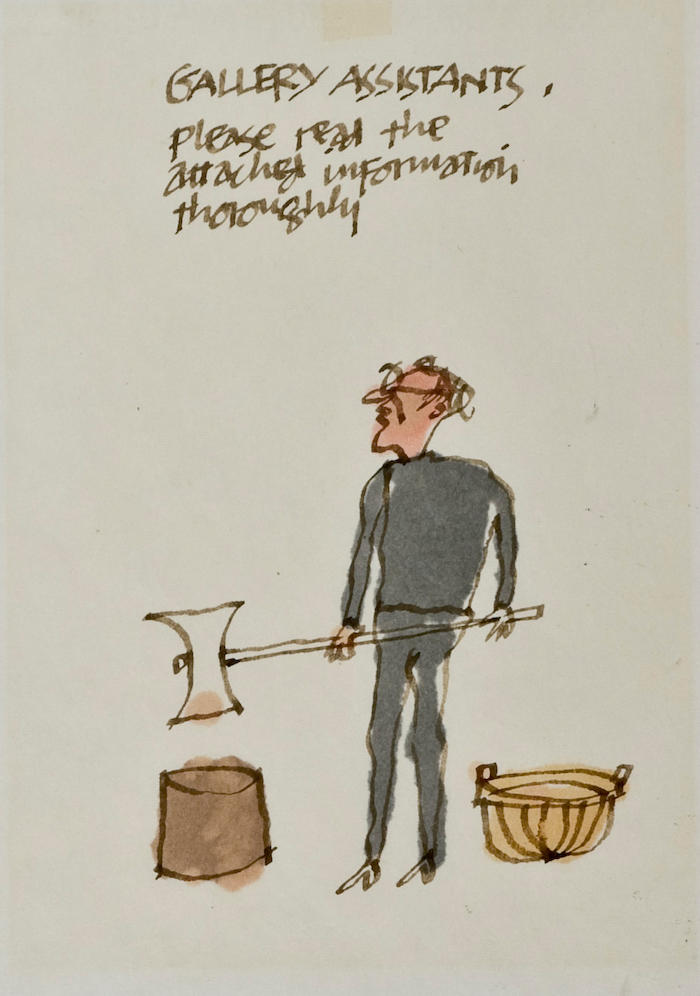 GALLERY ASSISTANTS.
please read the
attached information
thoroughly